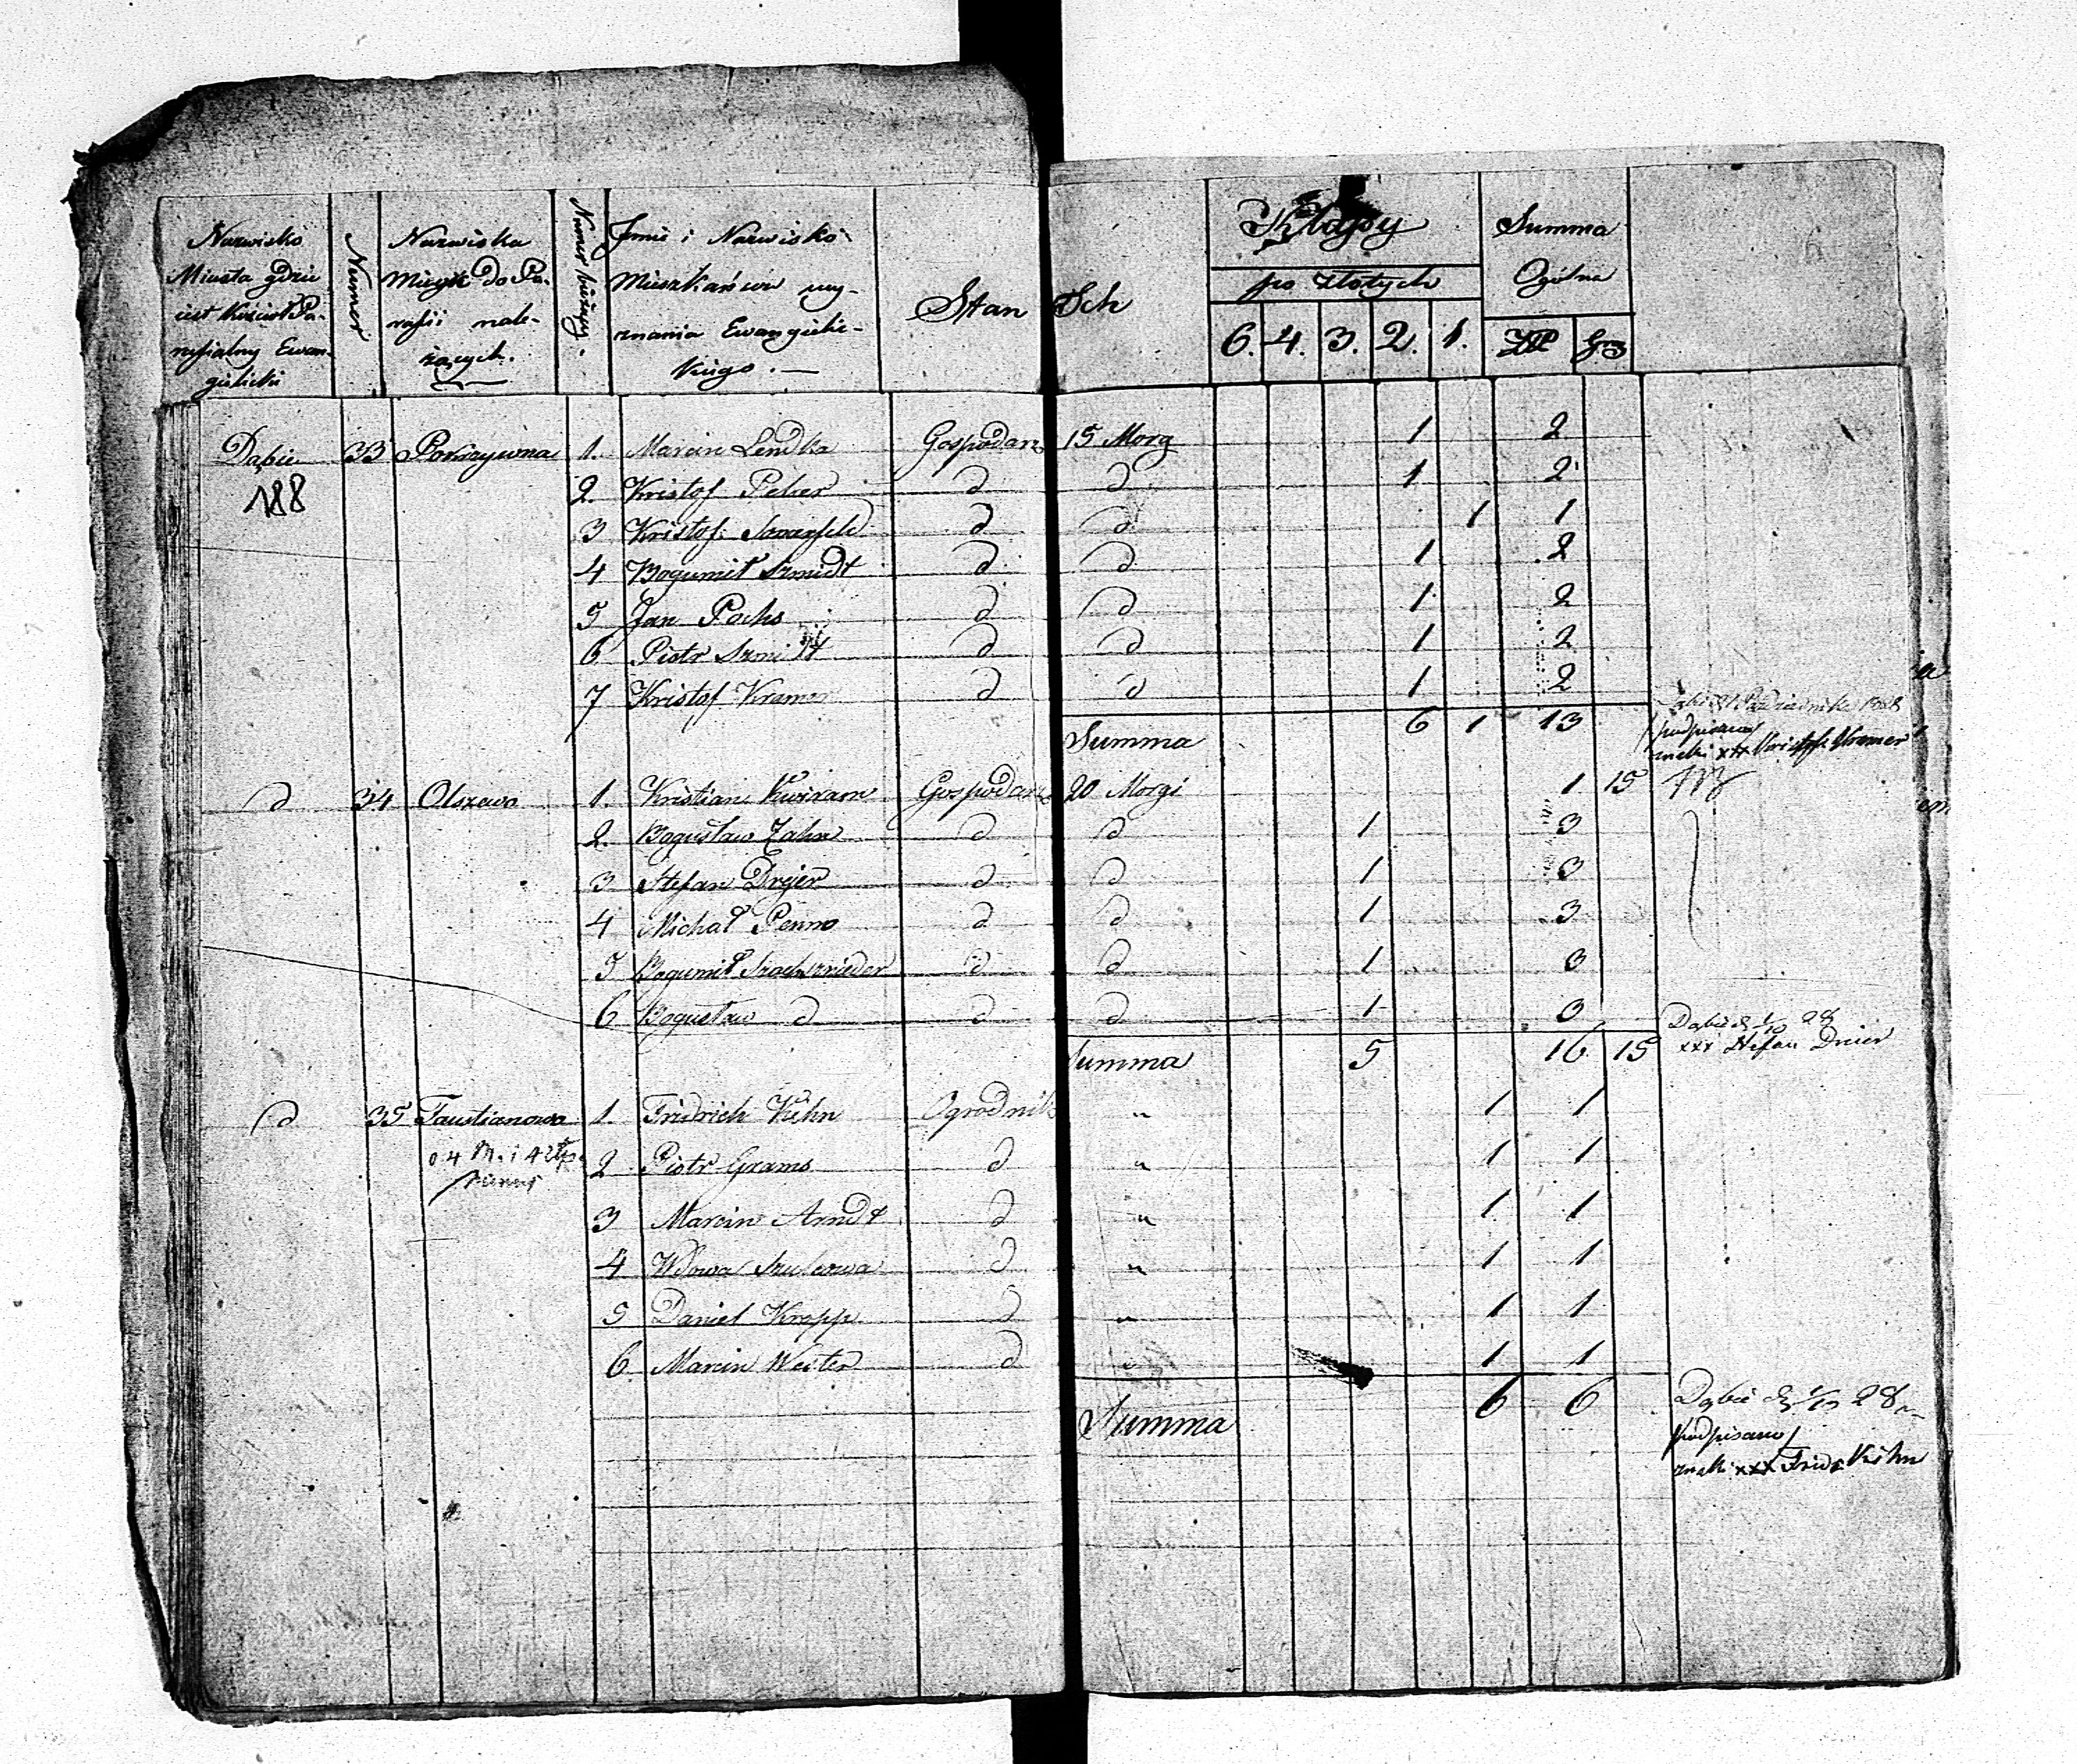 Nazwisko Miasta gdzie jest Kościoł Parafialny Ewangielicki
Numer
Nazwiska Mieysc do Parafii należących.
Numer bieżący.
Jmie i Nazwisko Mieszkańców wyznania Ewangielickiego.
Stan
Sch
Klassy
po złotych
6. 4. 3. 2. 1.
Summa Ogólna
ZłP Gr
Dąbie 33 Pokrzywna 1. Marcin Lendka Gospodarz 15 Morg 1 2
188
2. Kristof Petzer d d 1 2
3 Kristof d d 1 1
4 Bogumił Szmidt d d 1 2
5 Jan Pochs d d 1 2
6 Piotr Szmidt d d 1 2
7 Kristof Kramer d d 1 2
Summa 6 1 13
podpisano
znaki xxx Kristof Kramer
d 34 Olszewo 1. Kristian Gospodarz 20 Morgi 1 15
2. Bogusław Zahn d d 1 3
3 Stefan Drejer d d 1 3
4 Michał Penno d d 1 3
5 Bogumił d d 1 3
6 Bogusław d d d 1 3
Summa 5 16 15
Dąbie d 1/10 28
xxx Stefan Dreier
d 35 Faustianowo 1. Fridrich Kihn Ogrodnik " 1 1
2 Piotr Grams d " 1 1
3 Marcin Arndt d " 1 1
4 Wdowa Szulcowa d " 1 1
5 Daniel Kropp d " 1 1
6. Marcin Weiter d " 1 1
Summa 6 6
Dąbie d 1/10 28
podpisano
znaki xxx Frid. Kihn